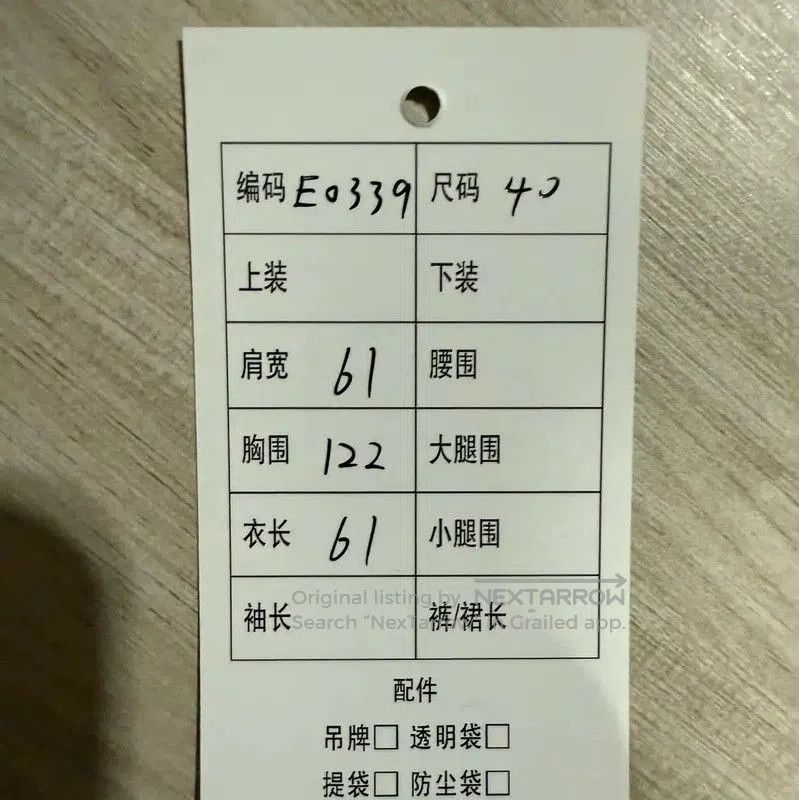 编码 E0339 尺码 40
上装 下装
肩宽 61 腰围
胸围 122 大腿围
衣长 61 小腿围
袖长 裤/裙长
Original listing by NEXTARROW
Search “NexTarrow” in Grailed app.
配件
吊牌□ 透明袋□
提袋□ 防尘袋□